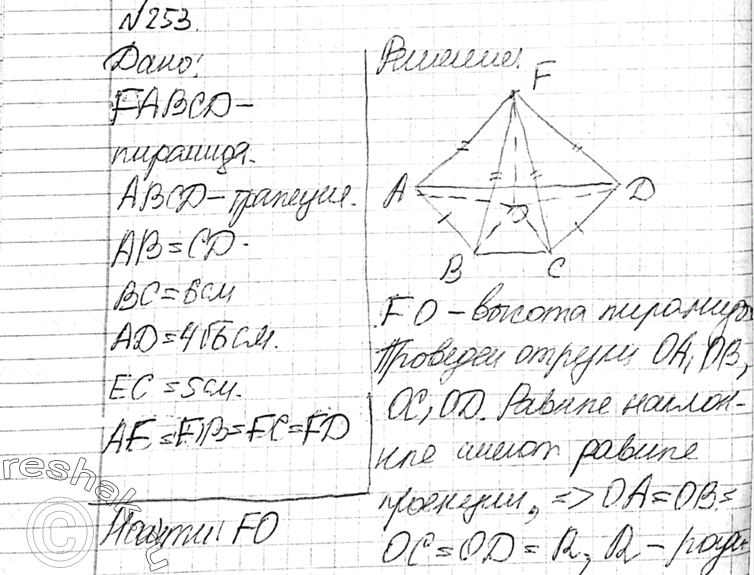 №253.
Дано:
FABCD –
пирамида.
ABCD – трапеция.
AB = CD.
BC = 6 см
AD = 4√6 см.
EC = 5 см.
AE = EB = EC = FD
Найти: FO
Решение:
F
A
D
O
B
C
FO – высота пирамиды
Проведем отрезки OA, OB,
OC, OD. Равные наклон-
ные имеют равные
проекции, => OA = OB =
OC = OD = R, R – ради-
reshak.ru
©